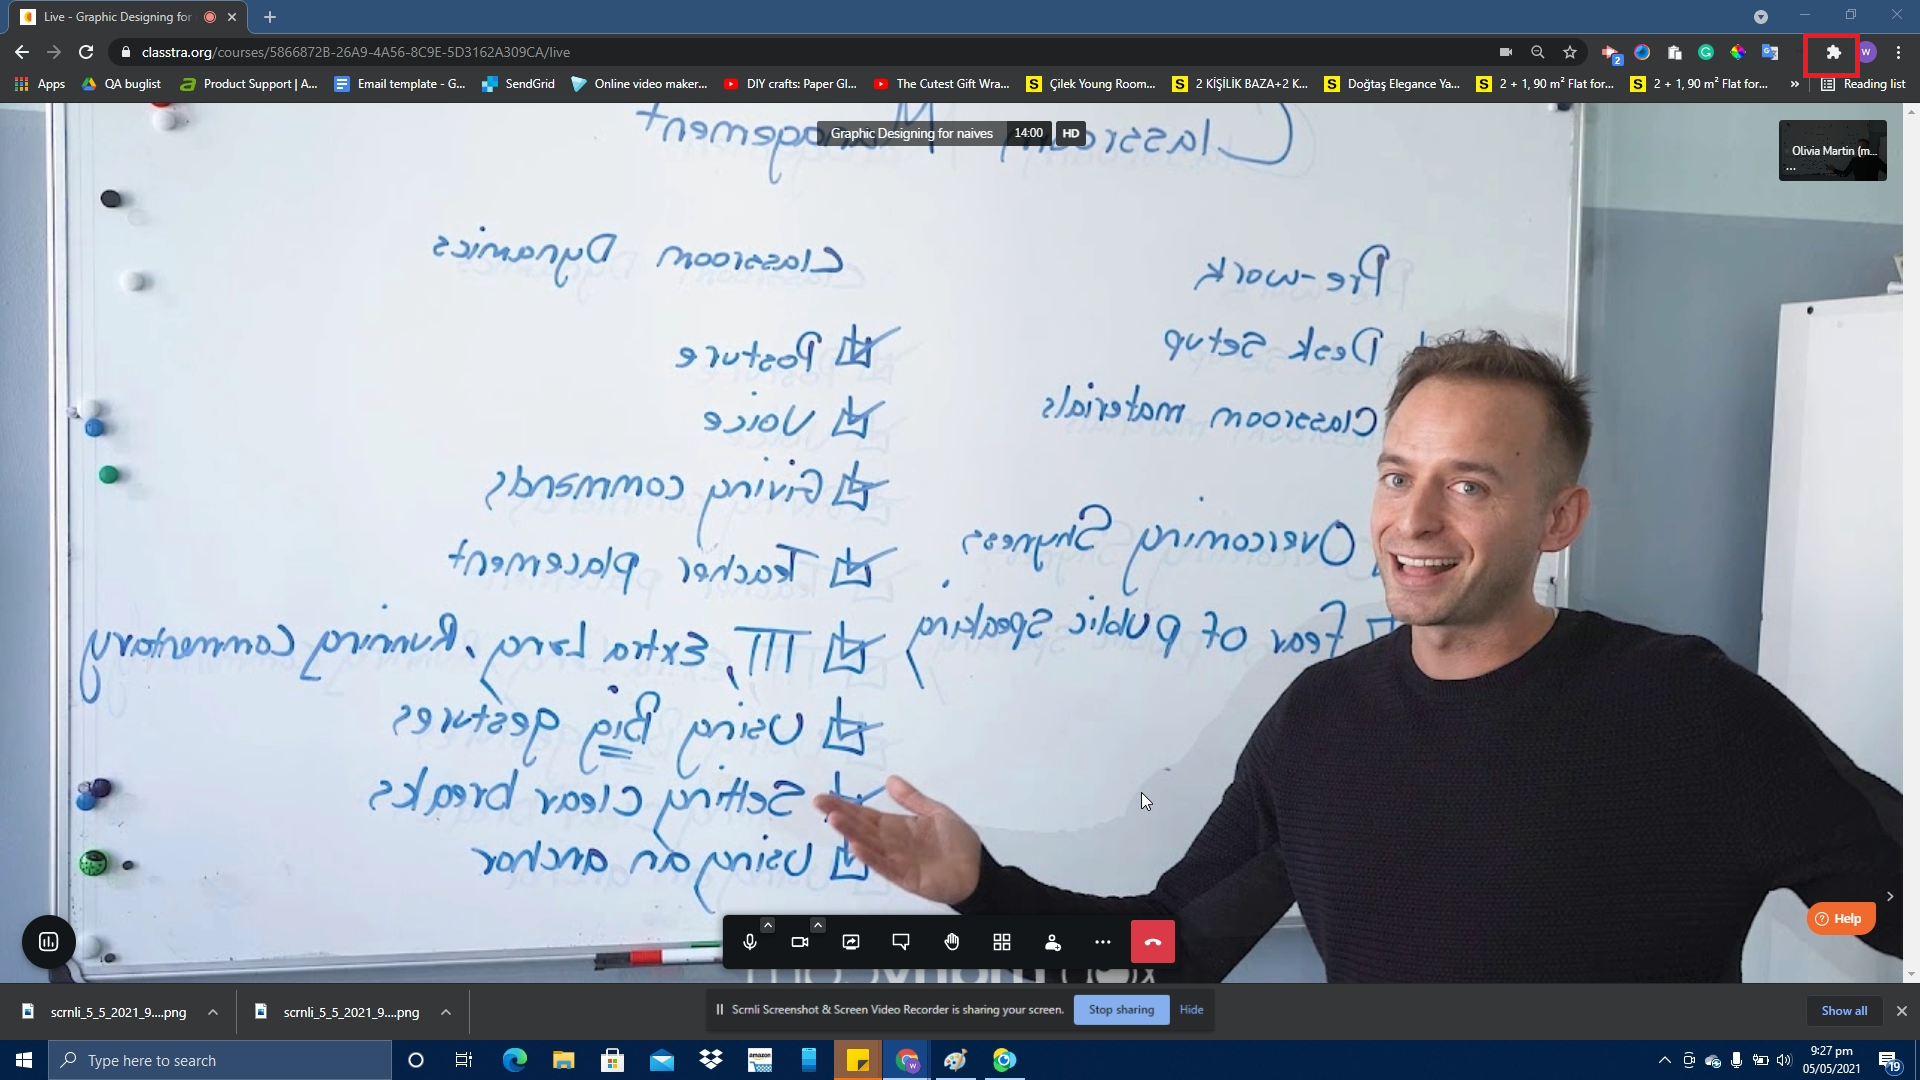 Live - Graphic Designing for
classtra.org/courses/5866872B-26A9-4A56-8C9E-5D3162A309CA/live
2
W
Apps
QA buglist
Product Support | A...
Email template - G...
SendGrid
Online video maker...
DIY crafts: Paper Gl...
The Cutest Gift Wra...
S Çilek Young Room...
S 2 KİŞİLİK BAZA+2 K...
S Doğtaş Elegance Ya...
S 2 + 1, 90 m² Flat for...
S 2 + 1, 90 m² Flat for...
»
Reading list
Graphic Designing for naives 14:00 HD
Olivia Martin (m...
...
Classroom Management
Pre-work
Desk Setup
Classroom materials
Overcoming Shyness
Fear of public Speaking
Classroom Dynamics
Posture
Voice
Giving commands
Teacher placement
TTT, Extra lang, Running Commentary
Using Big gestures
Setting clear breaks
Using an anchor
Help
scrnli_5_5_2021_9....png
scrnli_5_5_2021_9....png
Scrnli Screenshot & Screen Video Recorder is sharing your screen.
Stop sharing
Hide
Show all
Type here to search
amazon
9:27 pm
05/05/2021
19